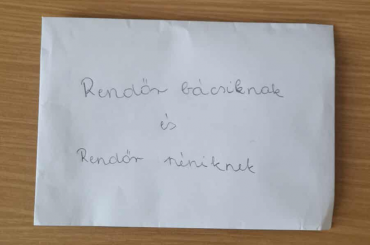 Rendőr bácsiknak
és
Rendőr néniknek